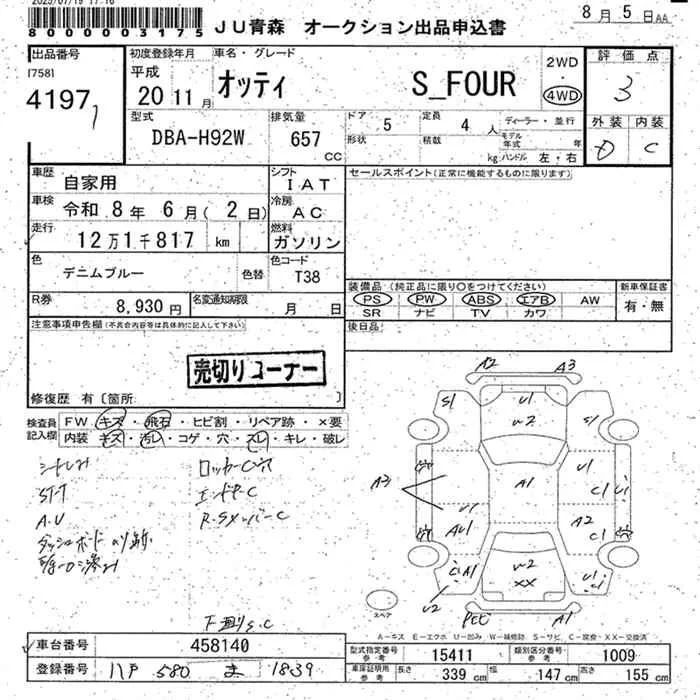 2025/07/19 17:16
8000003175
JU青森 オークション出品申込書
8月5日AA
出品番号
17581
4197
初度登録年月
平成
20 11月
車名・グレード
オッティ S_FOUR
2WD
・
4WD
評価点
3
外装 内装
D C
型式
DBA-H92W
排気量
657
CC
ドア
5
形状
定員
4人
積載
kg
ディーラー・並行
モデル
年式 年
ハンドル 左・右
車歴
自家用
シフト
IAT
車検
令和 8年 6月(2日)
冷房
AC
走行
12万1千817 km
燃料
ガソリン
色
デニムブルー
色替
色コード
T38
R券
8,930円
名変通知期限
月 日
セールスポイント(正常に機能するものに限ります)
装備品 (純正品に限り〇をつけてください)
PS PW ABS エアB AW
SR ナビ TV カワ
新車保証書
有・無
後日品
注意事項申告欄(不具合内容等は具体的に記入して下さい)
売切りコーナー
修復歴 有〔箇所: 〕
検査員
記入欄
FW キズ・飛石・ヒビ割・リペア跡・×要
内装 キズ・汚レ・コゲ・穴・スレ・キレ・破レ
A2 A3
S1 U1 S1
U2
A3 A1 U1 C1 U1
U1 AU1 A2 C1
A1 U2 XX
U2 A1
スペア
A-キズ E-エクボ U-凹み W-補修跡 S-サビ C-腐食・XX-交換済
車台番号
458140
登録番号
八戸 580 ま 1839
型式指定番号
参考
15411
類別区分番号
参考
1009
車庫証明用
参考
長さ
339 cm
幅
147 cm
高さ
155 cm